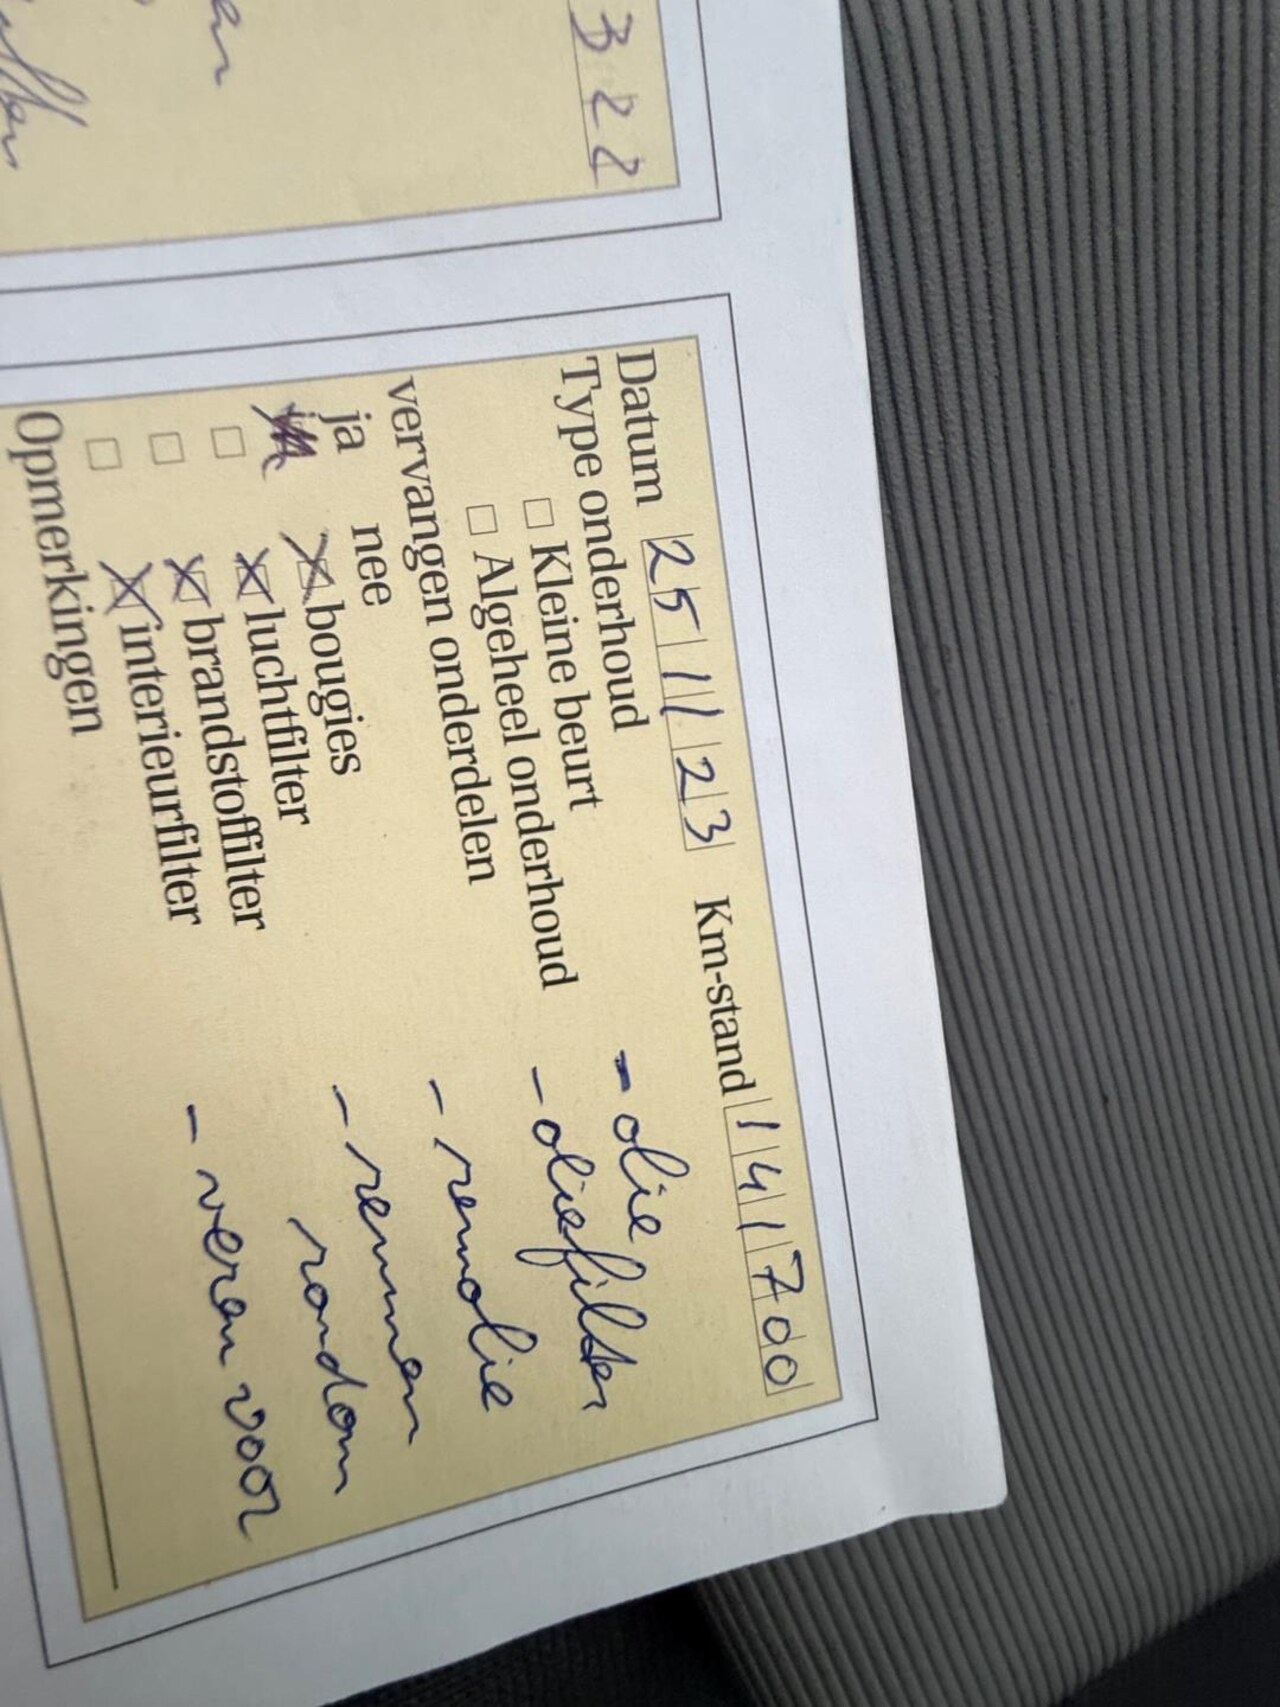 322
Datum 251123 Km-stand 141700
Type onderhoud
- olie
Kleine beurt
- oliefilter
Algeheel onderhoud
vervangen onderdelen
- remolie
ja nee
- remmen
rondom
bougies
luchtfilter
brandstoffilter
- veren voor
interieurfilter
Opmerkingen